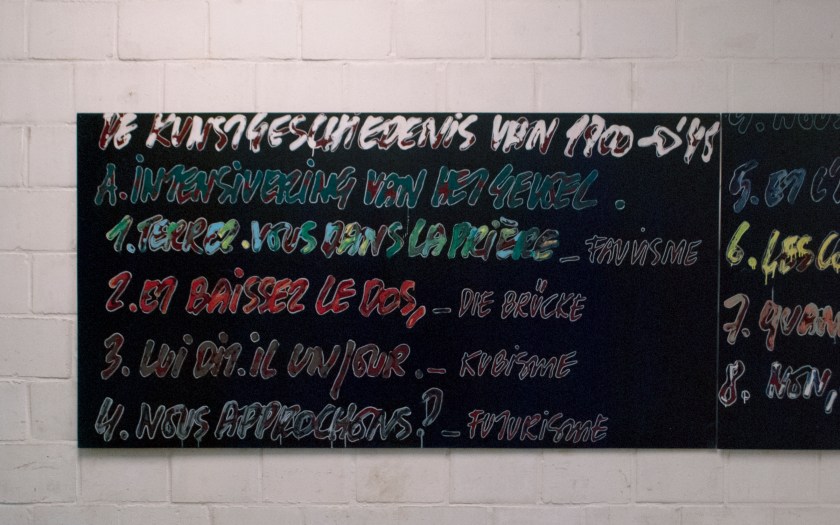 DE KUNSTGESCHIEDENIS VAN 1900 → '45
A. INTENSIVERING VAN HET GEVOEL.
1. TERREZ-VOUS DANS LA PRIÈRE _ FAUVISME
2. ET BAISSEZ LE DOS, _ DIE BRÜCKE
3. LUI DIT-IL UN JOUR. _ KUBISME
4. NOUS APPROCHONS? _ FUTURISME
5. ET
6. LES
7.
8. NON,